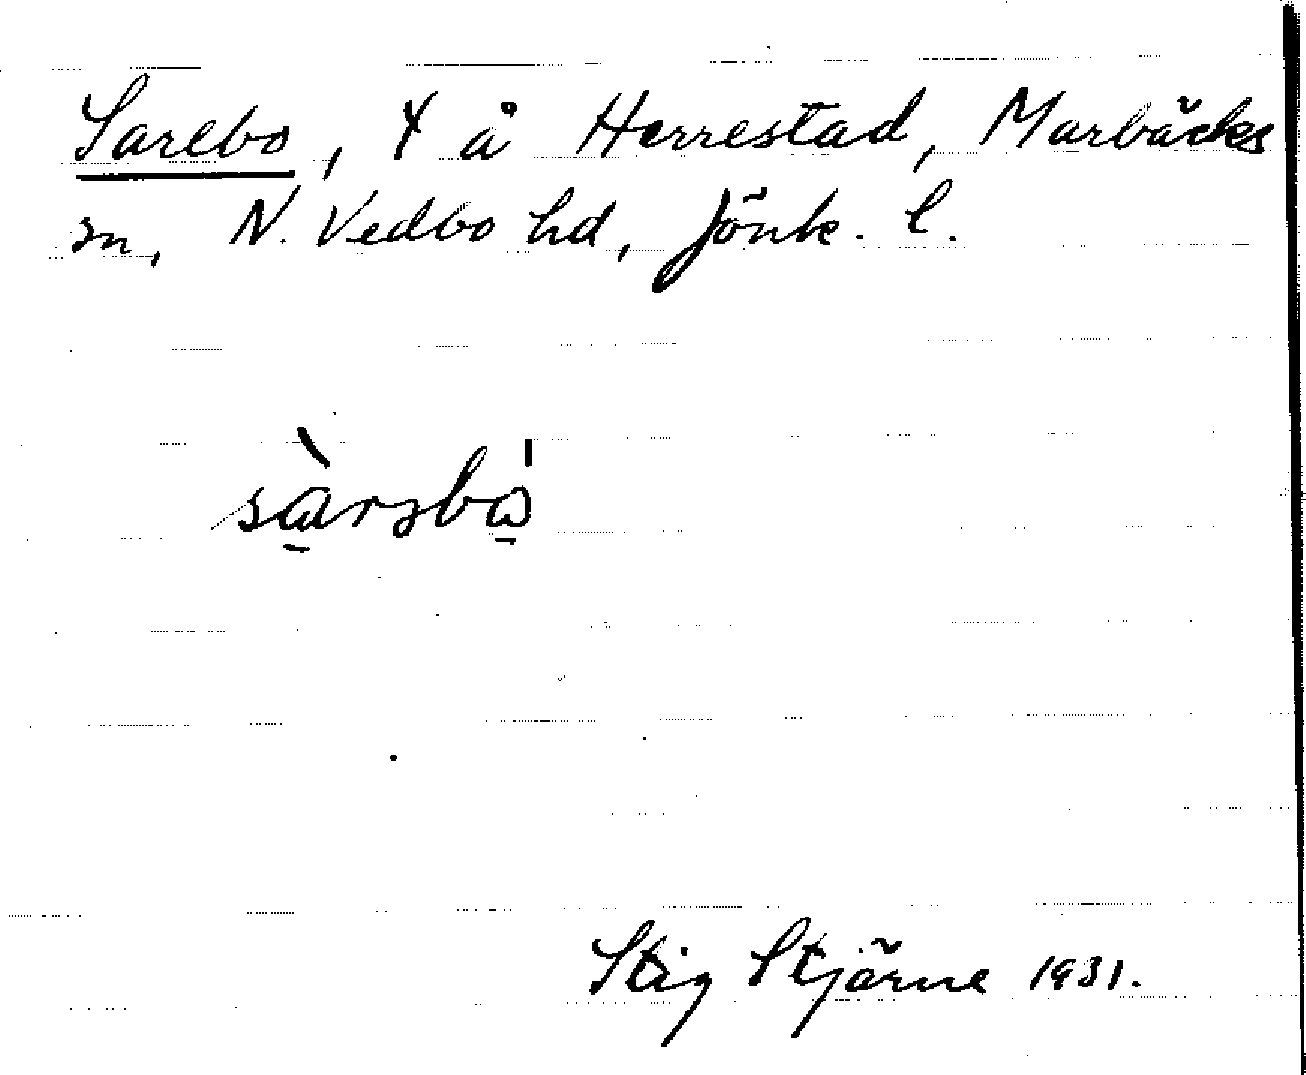 Sarebo, † å Herrestad, Marbäcks
sn, N. Vedbo hd, Jönk. l.
sàrəbω̲
Stig Stjärne 1931.